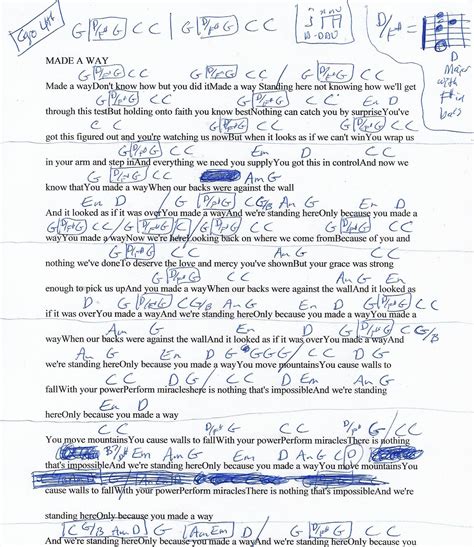 G D/F# G C C | G D/F# G C C D/F# =
D
Major
with
F# in
bass
MADE A WAY
G D/F# G C C G / D/F# G C C
Made a wayDon't know how but you did itMade a way Standing here not knowing how we'll get
G D/F# G C C G D/F# G C C Em D
through this testBut holding onto faith you know bestNothing can catch you by surpriseYou've
C C G D/F# G C C G D/F# G C C
got this figured out and you're watching us nowBut when it looks as if we can't winYou wrap us
G D/F# G C C Em D C C
in your arm and step inAnd everything we need you supplyYou got this in controlAnd now we
G D/F# G C C Am G
know thatYou made a wayWhen our backs were against the wall
Em D G D/F# G C G/B Am G Em D
And it looked as if it was overYou made a wayAnd we're standing hereOnly because you made a
G D/F# G C C / G D/F# G C / G D/F# G C C G D/F# G C C
wayYou made a wayNow we're hereLooking back on where we come fromBecause of you and
G D/F# G C C G D/F# G C C
nothing we've doneTo deserve the love and mercy you've shownBut your grace was strong
G D/F# G C C Am G Em
enough to pick us upAnd you made a wayWhen our backs were against the wallAnd it looked as
D G D/F# G C G/B Am G Em D G D/F# G C C
if it was overYou made a wayAnd we're standing hereOnly because you made a wayYou made a
Am G Em D G D/F# G C G/B
wayWhen our backs were against the wallAnd it looked as if it was overYou made a wayAnd
Am G Em D G G G G / C C D G
we're standing hereOnly because you made a wayYou move mountainsYou cause walls to
C C D G / C C D Em Am G
fallWith your powerPerform miracleshere is nothing that's impossibleAnd we're standing
Em D
hereOnly because you made a way
C C G D/F# G / C C
You move mountainsYou cause walls to fallWith your powerPerform miraclesThere is nothing
D/F# Em Am G Em D Am G C D
that's impossibleAnd we're standing hereOnly because you made a wayYou move mountainsYou
cause walls to fallWith your powerPerform miraclesThere is nothing that's impossibleAnd we're
standing hereOnly because you made a way
C G/B Am D G Am Em D / G D/F# G C C
And we're standing hereOnly because you made a wayAnd we're standing hereOnly because you